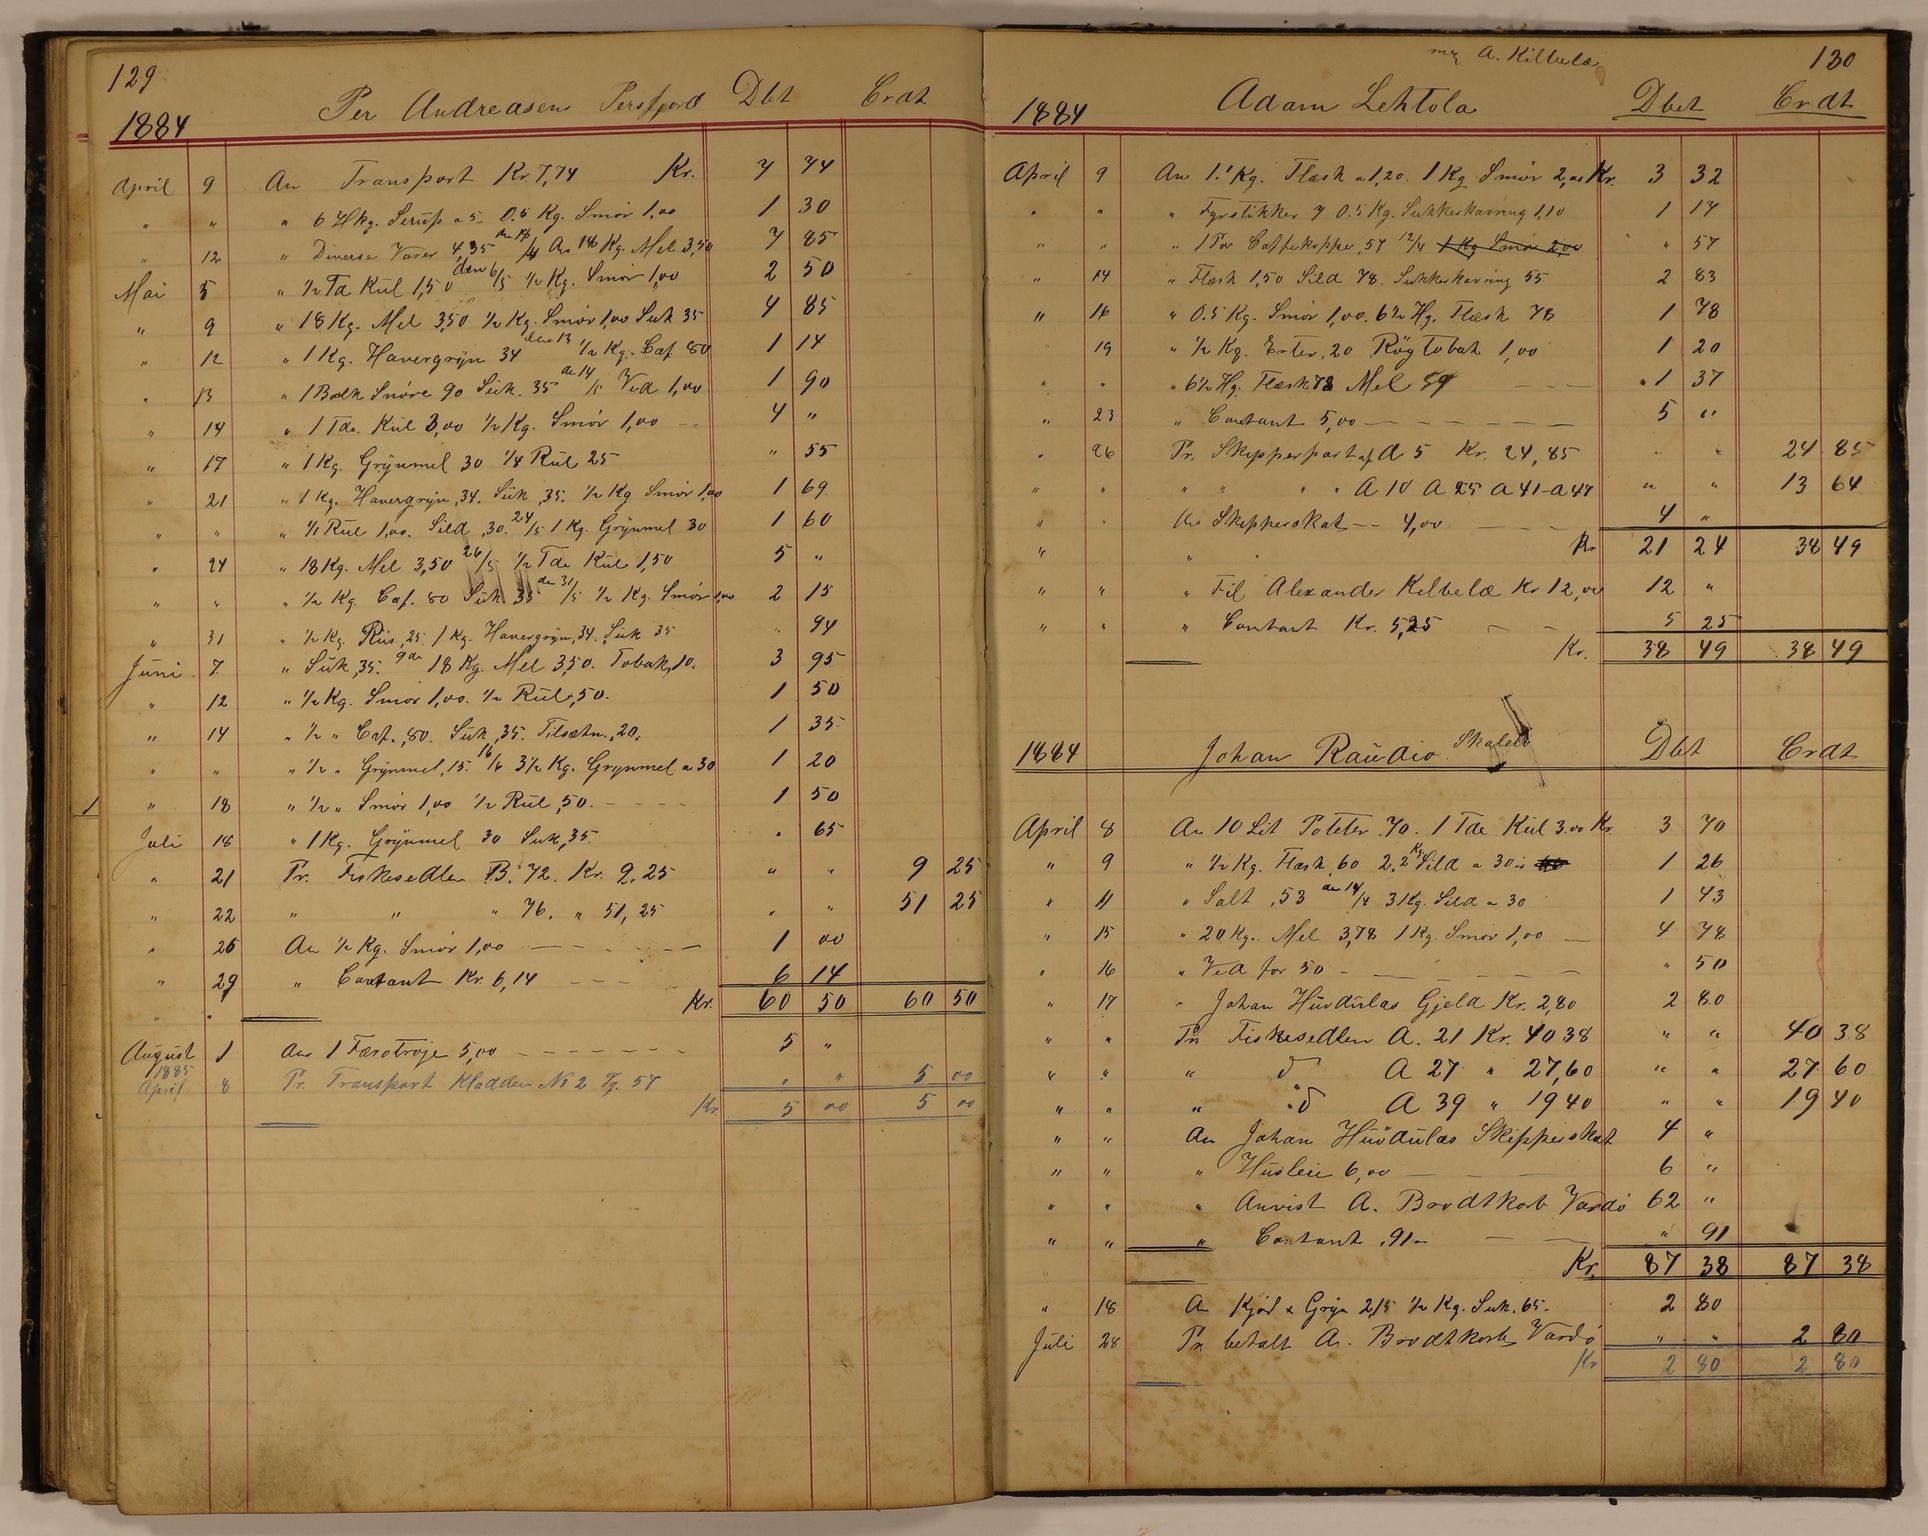 129
Per Andreasen Persfjord Dbt Crdt
1884
April 9 An Transport Kr. 7,74 Kr. 7 74
" " " 6 Hkg. Serup a 5 0.5 Kg. Smør 1,00 1 30
" 12 " Diverse Varer 4,35 An 18 Kg. Mel 3,50 7 85
Mai 5 " 1/2 Td Kul 1,50 den 6/5 1/2 Kg. Smør 1,00 2 50
" 9 " 18 Kg. Mel 3,50 1/2 Kg. Smør 1,00 Suk 35 4 85
" 12 " 1 Kg. Havergryn 34 den 13 1/2 Kg. Caf 80 1 14
" 13 " 1 Bdk Snøre 90 Suk. 35 de 14/5 Ved 1,00 1 90
" 14 " 1 Tde. Kul 3,00 1/2 Kg. Smør 1,00 4 "
" 17 " 1 Kg. Grynmel 30 1/4 Rul 25 " 55
" 21 " 1 Kg. Havergryn ,34. Suk ,35. 1/2 Kg Smør 1,00 1 69
" " " 1/1 Rul 1,00. Sild ,30. 24/5 1 Kg. Grynmel 30 1 60
" 24 " 18 Kg. Mel 3,50 26/5 1/2 Tde Kul 1,50 5 "
" " " 1/2 Kg. Caf. 80 Suk 35 de 31/5 1/2 Kg. Smør 1,00 2 15
" 31 " 1/2 Kg. Riis ,25. 1 Kg. Havergryn ,34. Suk 35 " 94
Juni 7. " Suk ,35. 9de 18 Kg. Mel 3,50. Tobak ,10. 3 95
" 12 " 1/2 Kg. Smør 1,00. 1/2 Rul ,50. 1 50
" 14 " 1/2 " Caf. ,80. Suk ,35. Tilsætn. ,20. 1 35
" " " 1/2 " Grynmel ,15. 16/6 3 1/2 Kg. Grynmel a 30 1 20
" 18 " 1/2 " Smør 1,00 1/2 Rul ,50. 1 50
Juli 18 " 1 Kg. Grynmel 30 Suk ,35. " 65
" 21 Pr. Fiskesedlen B. 72. Kr. 9,25 " " 9 25
" 22 " " " 76. " 51,25 " " 51 25
" 26 An 1/2 Kg. Smør 1,00 1 00
" 29 " Contant Kr. 6,14 6 14
" " Kr. 60 50 60 50
August 1 An 1 Færøtrøje 5,00 5 "
1885
April 8 Pr. Transport Kladden No 2 Pg. 57 " " 5 00
Kr 5 00 5 00
A. Kilbela 130
1884 Adam Lehtola Dbet Crdt
April 9 An 1.1 Kg. Flæsk a 1,20. 1 Kg Smør 2,00 Kr. 3 32
" " " Fyrstikker 7 0.5 Kg. Sukkerkavring 1,10 1 17
" " " 1 Par Caffekopper, 57 12/4 1 Kg Smør 2,00 " 57
" 14 " Flæsk 1,50 Sild 78. Sukkerkavring 55 2 83
" 16 " 0.5 Kg. Smør 1,00. 6 1/2 Hg. Flæsk 78 1 78
" 19 " 1/2 Kg. Erter ,20 Røgtobak 1,00 1 20
" " " 6 1/2 Hg. Flæsk 78 Mel 59 1 37
" 23 " Contant 5,00 5 "
" 26 Pr. Skipperpart af A 5 Kr. 24,85 " " 24 85
" " " " " " A 10 A 25 A 41 - A 47 " " 13 64
" " An Skipperskat 4,00 4 "
" " Kr 21 24 38 49
" " " Til Alexander Kelbelæ Kr 12,00 12 "
" " " Contant Kr. 5,25 5 25
Kr. 38 49 38 49
1884 Johan Raudio Dbt Crdt
April 8 An 10 Lit Poteter .70. 1 Tde Kul 3.00 Kr 3 70
" 9 " 1/2 Kg. Flæsk ,60 2.2 Kg Sild a 30 1 26
" 11 " Salt ,53 den 14/4 3 Kg. Sild a 30 1 43
" 15 " 20 Kg. Mel 3,78 1 Kg. Smør 1,00 4 78
" 16 " Ved for 50 " 50
" 17 " Johan Huvdulas Gjeld Kr. 2,80 2 80
" " Pr Fiskesedlen A. 21 Kr. 40 38 " " 40 38
" " " d A 27 " 27,60 " " 27 60
" " " d A 39 " 19 40 " " 19 40
" " An Johan Huvdulas Skipperskat 4 "
" " " Husleie 6,00 6 "
" " " Anvist A. Brodtkorb Vardø 62 "
" " " Contant ,91 " 91
Kr. 87 38 87 38
" 18 An Kjød & Gryn 2,15 1/2 Kg. Suk. 65. 2 80
Juli 28 Pr betalt A. Brodtkorb Vardø " " 2 80
Kr 2 80 2 80